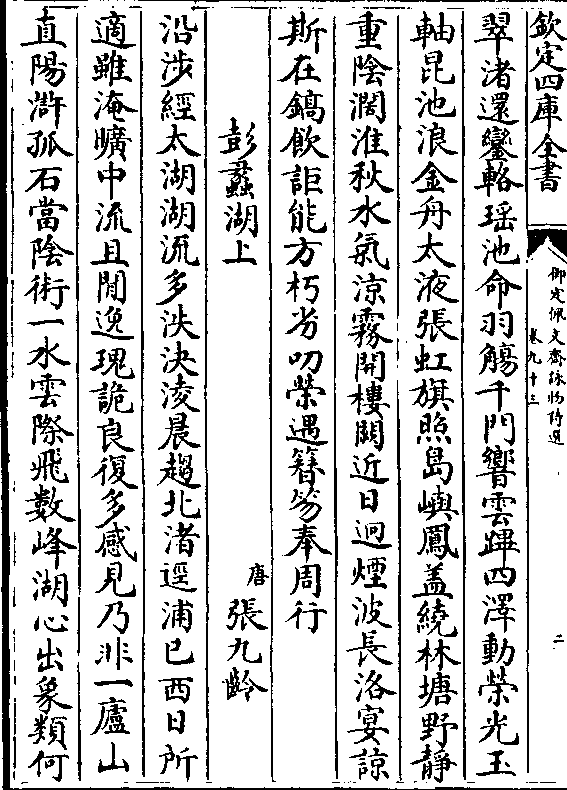 欽定四庫全書
御定佩文齋詠物詩選
卷九十三
二
翠渚還鑾輅瑶池命羽觴千門響雲蹕四澤動榮光玉
軸昆池浪金舟太液張虹旗照島嶼鳳盖繞林塘野靜
重陰濶淮秋水氣涼霧開樓闕近日迥煙波長洛宴諒
斯在鎬飲詎能方朽劣叨榮遇簪笏奉周行
彭蠡湖上
唐張九齡
沿涉經太湖湖流多泆決淩晨趨北渚逕浦已西日所
適雖淹曠中流且閒逸瑰詭良復多感見乃非一廬山
直陽滸孤石當陰術一水雲際飛數峰湖心出象類何